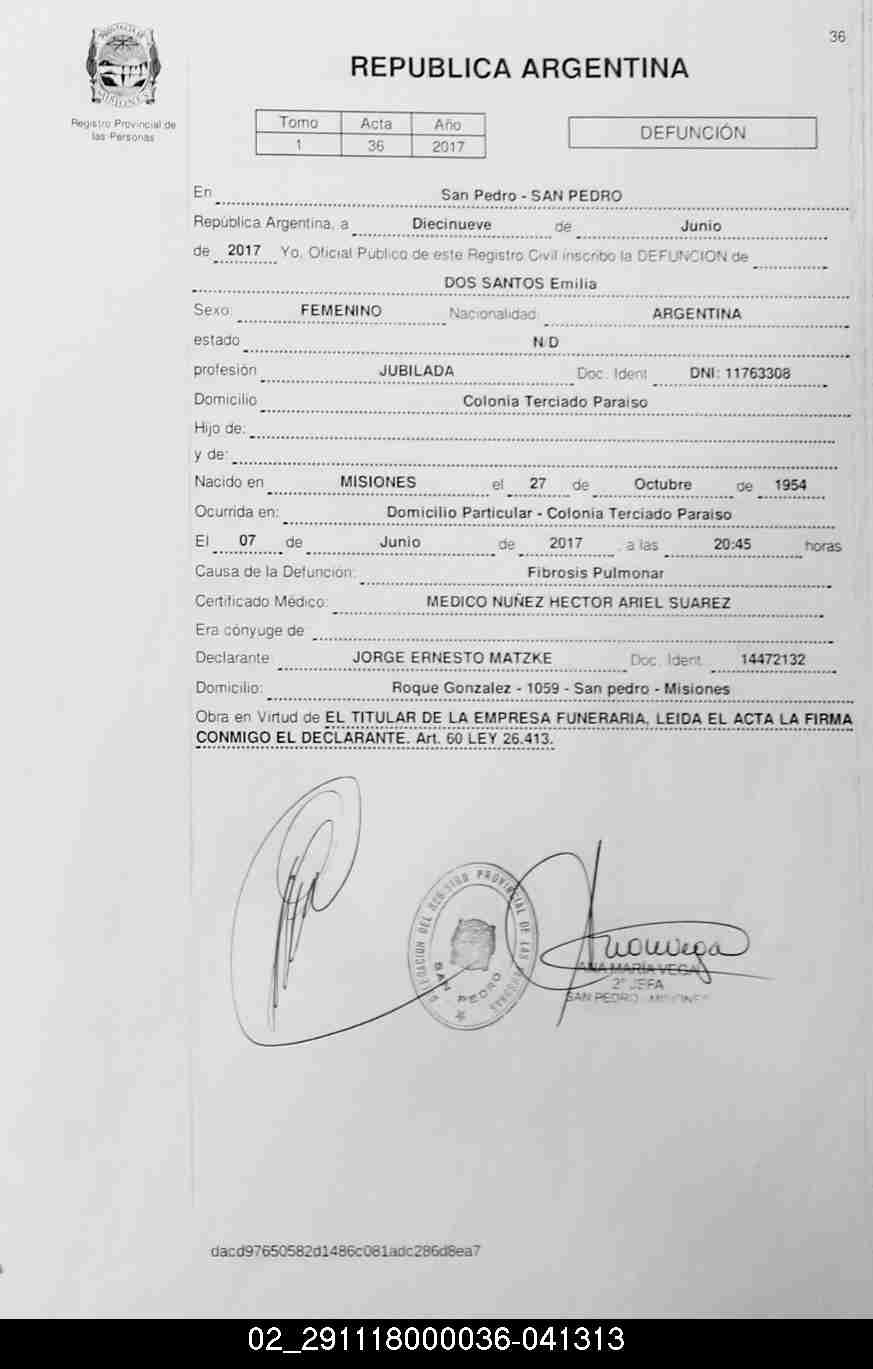 36
PROVINCIA DE
MISIONES
Registro Provincial de
las Personas
REPUBLICA ARGENTINA
Tomo Acta Año
1 36 2017
DEFUNCIÓN
En San Pedro - SAN PEDRO
República Argentina, a Diecinueve de Junio
de 2017 Yo, Oficial Público de este Registro Civil inscribo la DEFUNCION de
DOS SANTOS Emilia
Sexo: FEMENINO Nacionalidad: ARGENTINA
estado N/D
profesión JUBILADA Doc. Ident DNI: 11763308
Domicilio Colonia Terciado Paraiso
Hijo de:
y de:
Nacido en MISIONES el 27 de Octubre de 1954
Ocurrida en: Domicilio Particular - Colonia Terciado Paraiso
El 07 de Junio de 2017, a las 20:45 horas
Causa de la Defunción: Fibrosis Pulmonar
Certificado Médico: MEDICO NUÑEZ HECTOR ARIEL SUAREZ
Era cónyuge de
Declarante: JORGE ERNESTO MATZKE Doc. Ident. 14472132
Domicilio: Roque Gonzalez - 1059 - San pedro - Misiones
Obra en Virtud de EL TITULAR DE LA EMPRESA FUNERARIA, LEIDA EL ACTA LA FIRMA
CONMIGO EL DECLARANTE. Art. 60 LEY 26.413.
DELEGACION DEL REGISTRO PROVINCIAL DE LAS PERSONAS
SAN PEDRO
ANA MARÍA VEGA
2° JEFA
SAN PEDRO - MISIONES
dacd97650582d1486c081adc286d8ea7
02_291118000036-041313